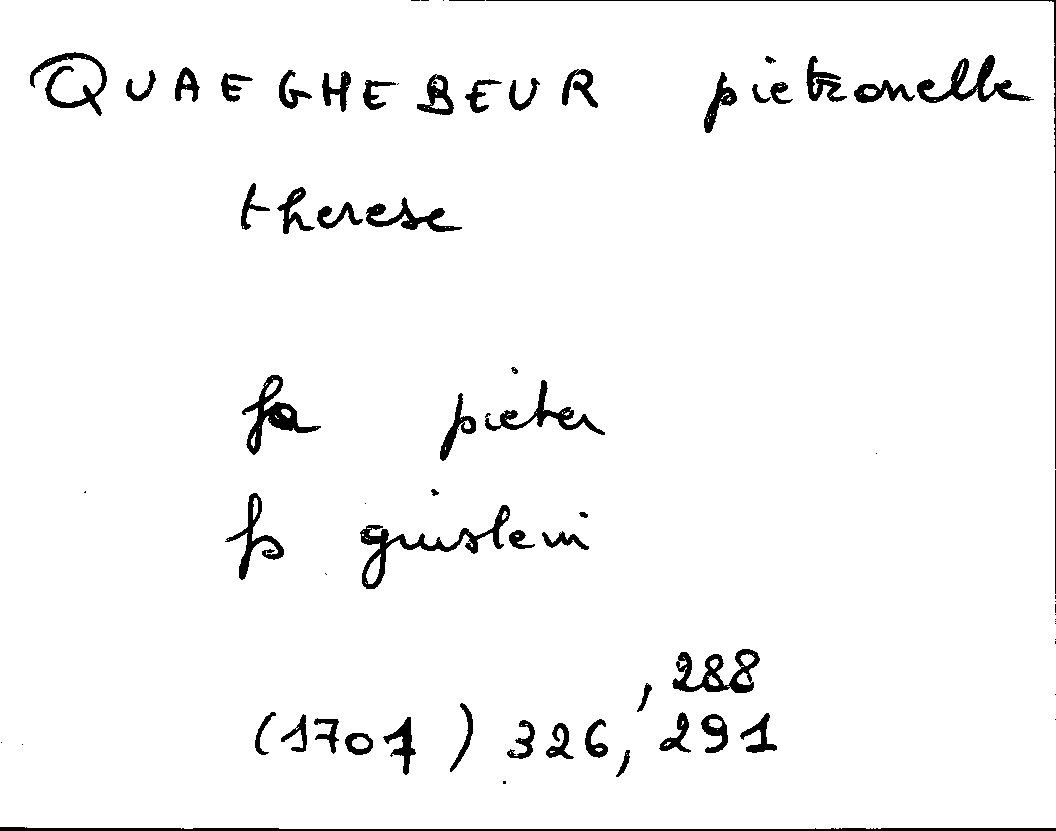 QUAEGHEBEUR pietronelle
therese
fa pieter
fs guislein
, 288
(1701) 326, 291